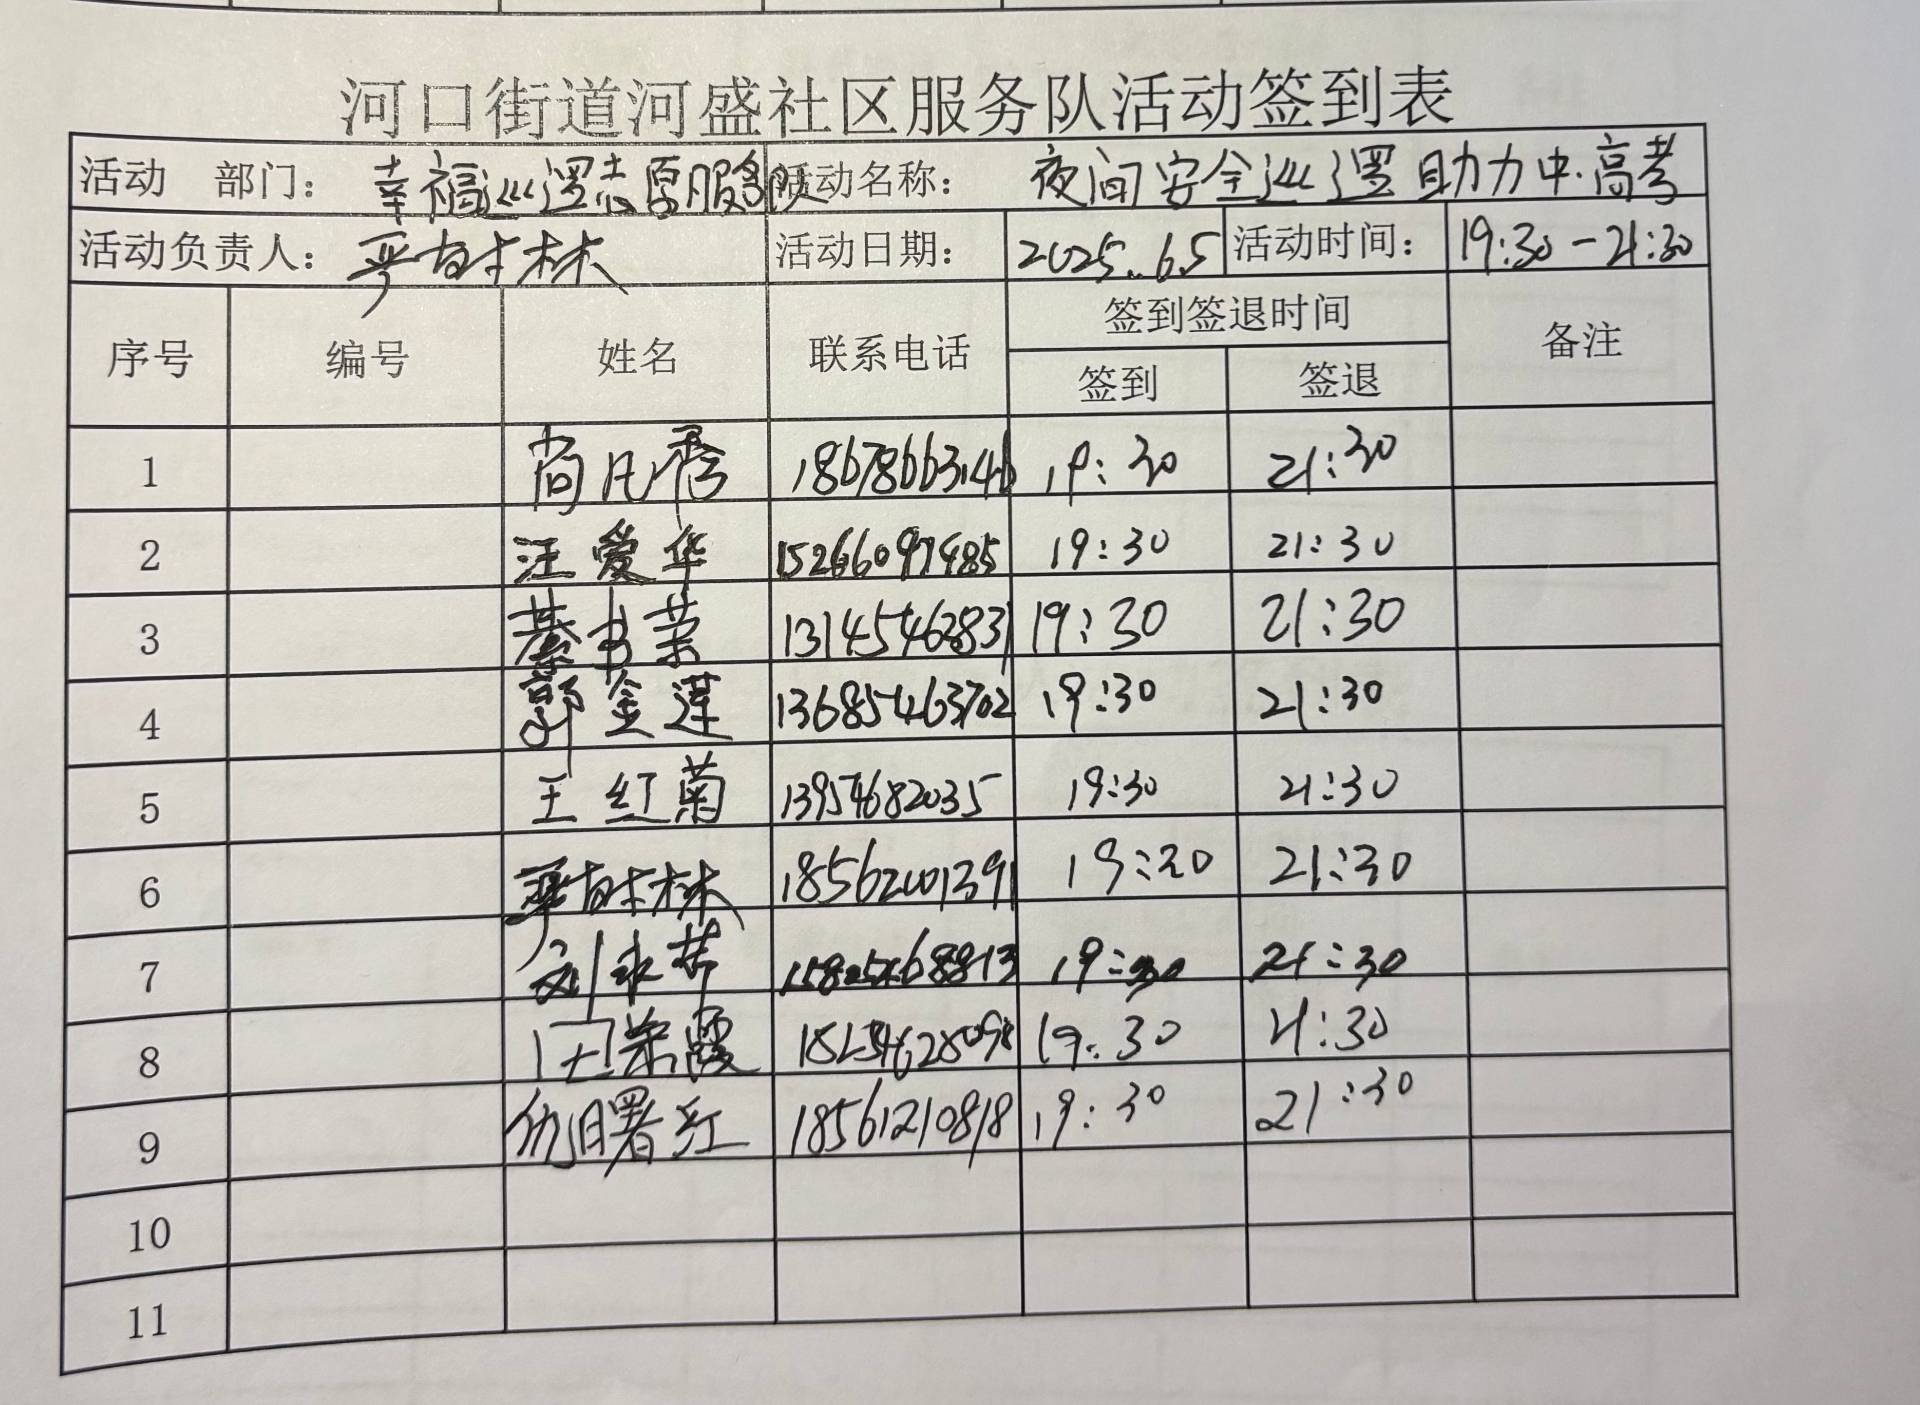 河口街道河盛社区服务队活动签到表
活动 部门： 幸福巡逻志愿服务队 活动名称： 夜间安全巡逻助力中.高考
活动负责人： 严树林 活动日期： 2025.6.5 活动时间： 19:30-21:30
序号 编号 姓名 联系电话 签到签退时间 备注
签到 签退
1 尚凡秀 18678663146 19:30 21:30
2 汪爱华 15266097485 19:30 21:30
3 綦书荣 13145462831 19:30 21:30
4 郭金莲 13685463702 19:30 21:30
5 王红菊 13954682035 19:30 21:30
6 严树林 18562001391 19:30 21:30
7 刘永芹 19:30 21:30
8 19:30 21:30
9 仇曙红 18561210818 19:30 21:30
10
11